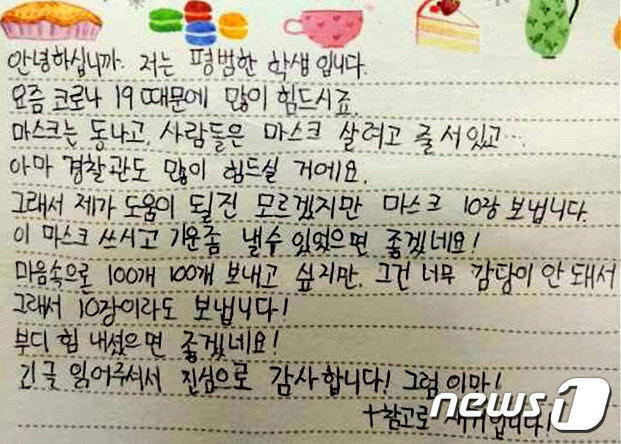 안녕하십니까. 저는 평범한 학생입니다.
요즘 코로나 19 때문에 많이 힘드시죠.
마스크는 동나고, 사람들은 마스크 살려고 줄 서있고...
아마 경찰관도 많이 힘드실 거에요.
그래서 제가 도움이 될진 모르겠지만 마스크 10장 보냅니다.
이 마스크 쓰시고 기운좀 낼수 있었으면 좋겠네요!
마음속으론 100개 100개 보내고 싶지만, 그건 너무 감당이 안 돼서
그래서 10장이라도 보냅니다!
부디 힘 내셨으면 좋겠네요!
긴글 읽어주셔서 진심으로 감사합니다! 그럼 이만!
+참고로
news1